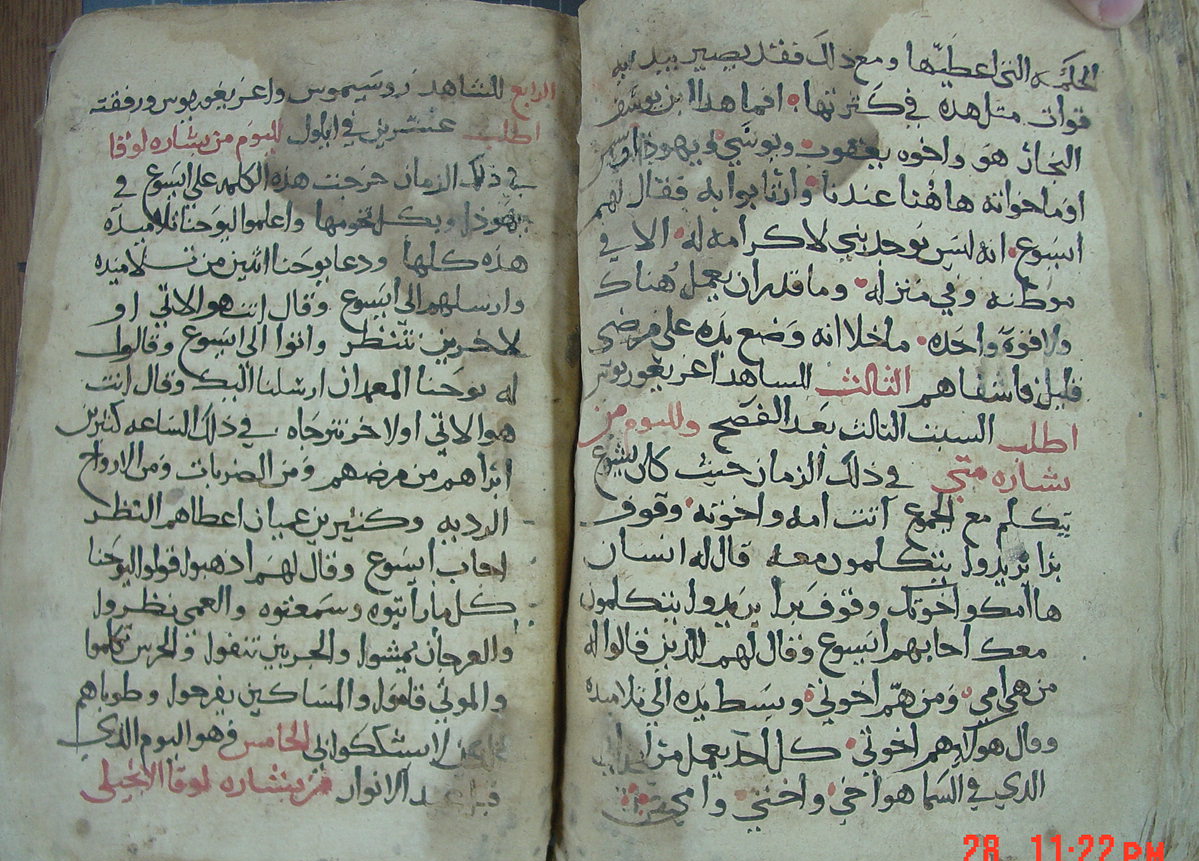 الحكمه التي اعطيها ومع ذلك فقد يصير بيديه
قوات مثل هذه في كثرتها افما هذا ابن يوسف
النجار هو واخوه يعقوب ويوسي ويهوذا
او ما خواته هاهنا عندنا وارتابوا به فقال لهم
ايسوع انه ليس يوجد نبي لا كرامه له الا في
موطنه وفي منزله وما قدر ان يعمل هناك
ولا قوة واحده ماخلا انه وضع يده على مرضي
قليل فاشفاهم الثالث للساهد
اطلب السبت الثالث بعد الفصح ولليوم من
بشاره متي في ذلك الزمان حيث كان يسوع
يتكلم مع الجموع اتت امه واخوته وقوف
برا يريدوا يتكلمون معه قال له انسان
ها امك واخوتك وقوف برا يريدوا يتكلمون
معك اجابهم ايسوع وقال لهم للذين قالوا له
من هي امي ومن هم اخوتي وبسط يده الي تلاميده
وقال هولاءهم اخوتي كل احد يعمل
الذي في السما هو اخي واختي وامي
الرابع للشاهد زوسيموس ورفقته
اطلب عشرين في ايلول لليوم من بشاره لوقا
في ذلك الزمان خرجت هذه الكلمه علي ايسوع في
يهوذا وبكل تخومها واعلموا ليوحنا تلاميده
هذه كلها ودعا يوحنا اثنين من تلاميده
وارسلهم الي ايسوع وقال انت هو الاتي او
لاخرين ننتظر واتوا الي ايسوع وقالوا
له يوحنا المعمدان ارسلنا اليك وقال انت
هو الاتي او لاخر نترجاه في ذلك الساعه كثيرين
ابراهم من مرضهم ومن الضربات ومن الارواح
الرديه وكثيرين عميان اعطاهم النظر
اجاب ايسوع وقال لهم ادهبوا قولوا ليوحنا
كل ما رايتوه وسمعتوه والعمي نظروا
والعرجان يمشوا والجربين تنقوا والخرس تكلموا
والموتي قاموا والمساكين يفرحوا وطوباهم
لاستشككوا بي الخامس فهو اليوم الذي
قبل عيد الانوار من بشاره لوقا الانجيلي
28 11:22 PM